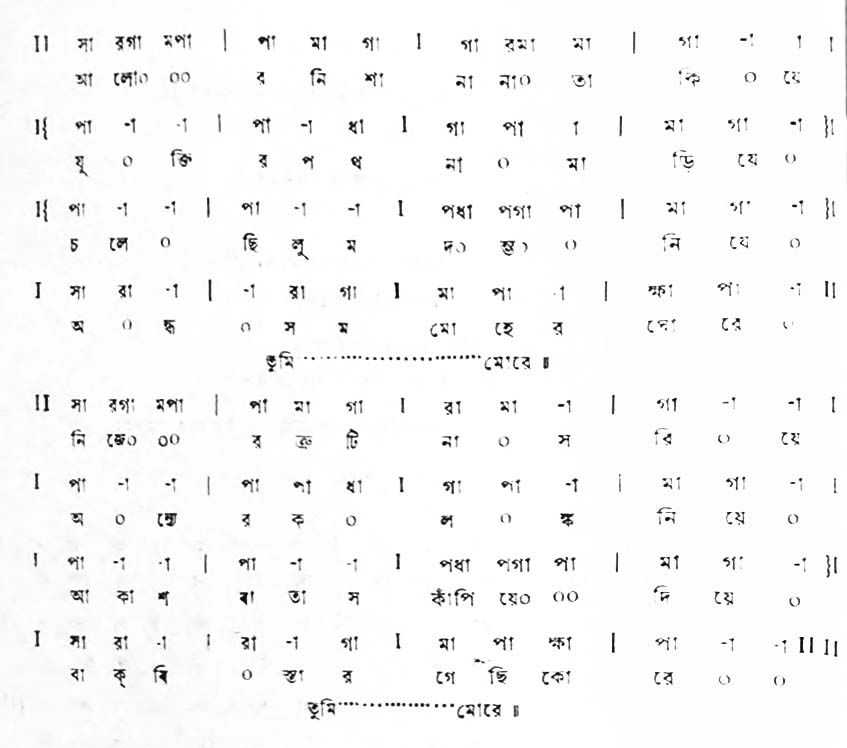 II সা রগা মপা | পা মা গা I গা রমা মা | গা -া া I
আ লো০ ০০ র নি শা না না০ তা কি ০ য়ে
I{ পা -া -া | পা -া ধা I গা পা া | মা গা -া }I
যু ০ ক্তি র প থ না ০ মা ড়ি য়ে ০
I{ পা -া -া | পা -া -া I পধা পগা পা | মা গা -া }I
চ লে ০ ছি লু ম দ০ ম্ভ০ ০ নি য়ে ০
I সা রা -া | -া রা গা I মা পা -া | ক্ষা পা -া II
অ ০ ন্ধ ০ স ম মো হে র ঘো রে ০
তুমি······················মোরে ॥
II সা রগা মপা | পা মা গা I রা মা -া | গা -া -া I
নি জে০ ০০ র ত্রু টি না ০ স রি ০ য়ে
I পা -া -া | পা পা ধা I গা পা -া | মা গা -া I
অ ০ ন্যে র ক ০ ল ০ ঙ্ক নি য়ে ০
I পা -া -া | পা -া -া I পধা পগা পা | মা গা -া }I
আ কা শ বা তা স কাঁপি য়ে০ ০০ দি য়ে ০
I সা রা -া | রা -া গা I মা পা ক্ষা | পা -া -া II II
বা ক্ বি ০ স্তা র গে ছি কো রে ০ ০
তুমি··················মোরে ॥